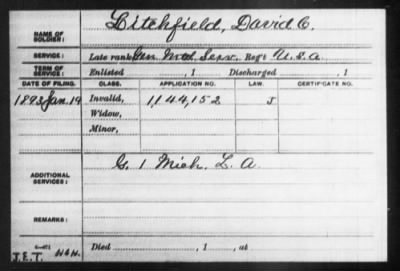 NAME OF SOLDIER: Litchfield, David C.
SERVICE: Late rank Gen Mtd Serv. Reg't U.S.A
TERM OF SERVICE: Enlisted , 1 Discharged , 1
DATE OF FILING. CLASS. APPLICATION NO. LAW. CERTIFICATE NO.
1893 Jan. 19 Invalid, 1,144,152 J
Widow,
Minor,
ADDITIONAL SERVICES: G. 1 Mich. L. A.
REMARKS:
Died , 1 , at
J.E.T.